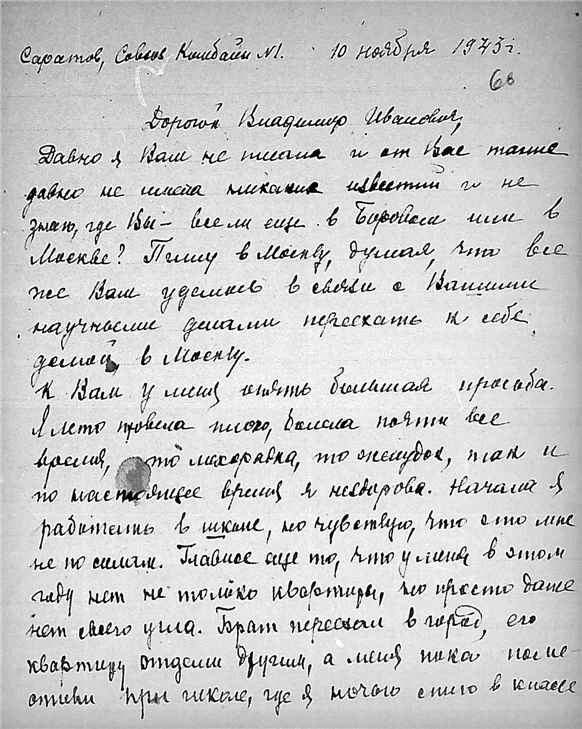 Саратов, Совхоз Комбайн №1. 10 ноября 1943 г.
60
Дорогой Владимир Иванович,
Давно я Вам не писала и от Вас также
давно не имела никаких известий и не
знаю, где Вы – все ли еще в Боровом или в
Москве? Пишу в Москву, думая, что все
же Вам удалось в связи с Вашими
научными делами переехать к себе
домой, в Москву.
К Вам у меня опять большая просьба.
Я лето провела плохо, болела почти все
время, то лихорадка, то желудок, так и
по настоящее время я нездорова. Начала я
работать в школе, но чувствую, что это мне
не по силам. Главное еще то, что у меня в этом
году нет не только квартиры, но просто даже
нет своего угла. Брат переехал в город, его
квартиру отдали другим, а меня пока поме-
стили при школе, где я ночью сплю в классе